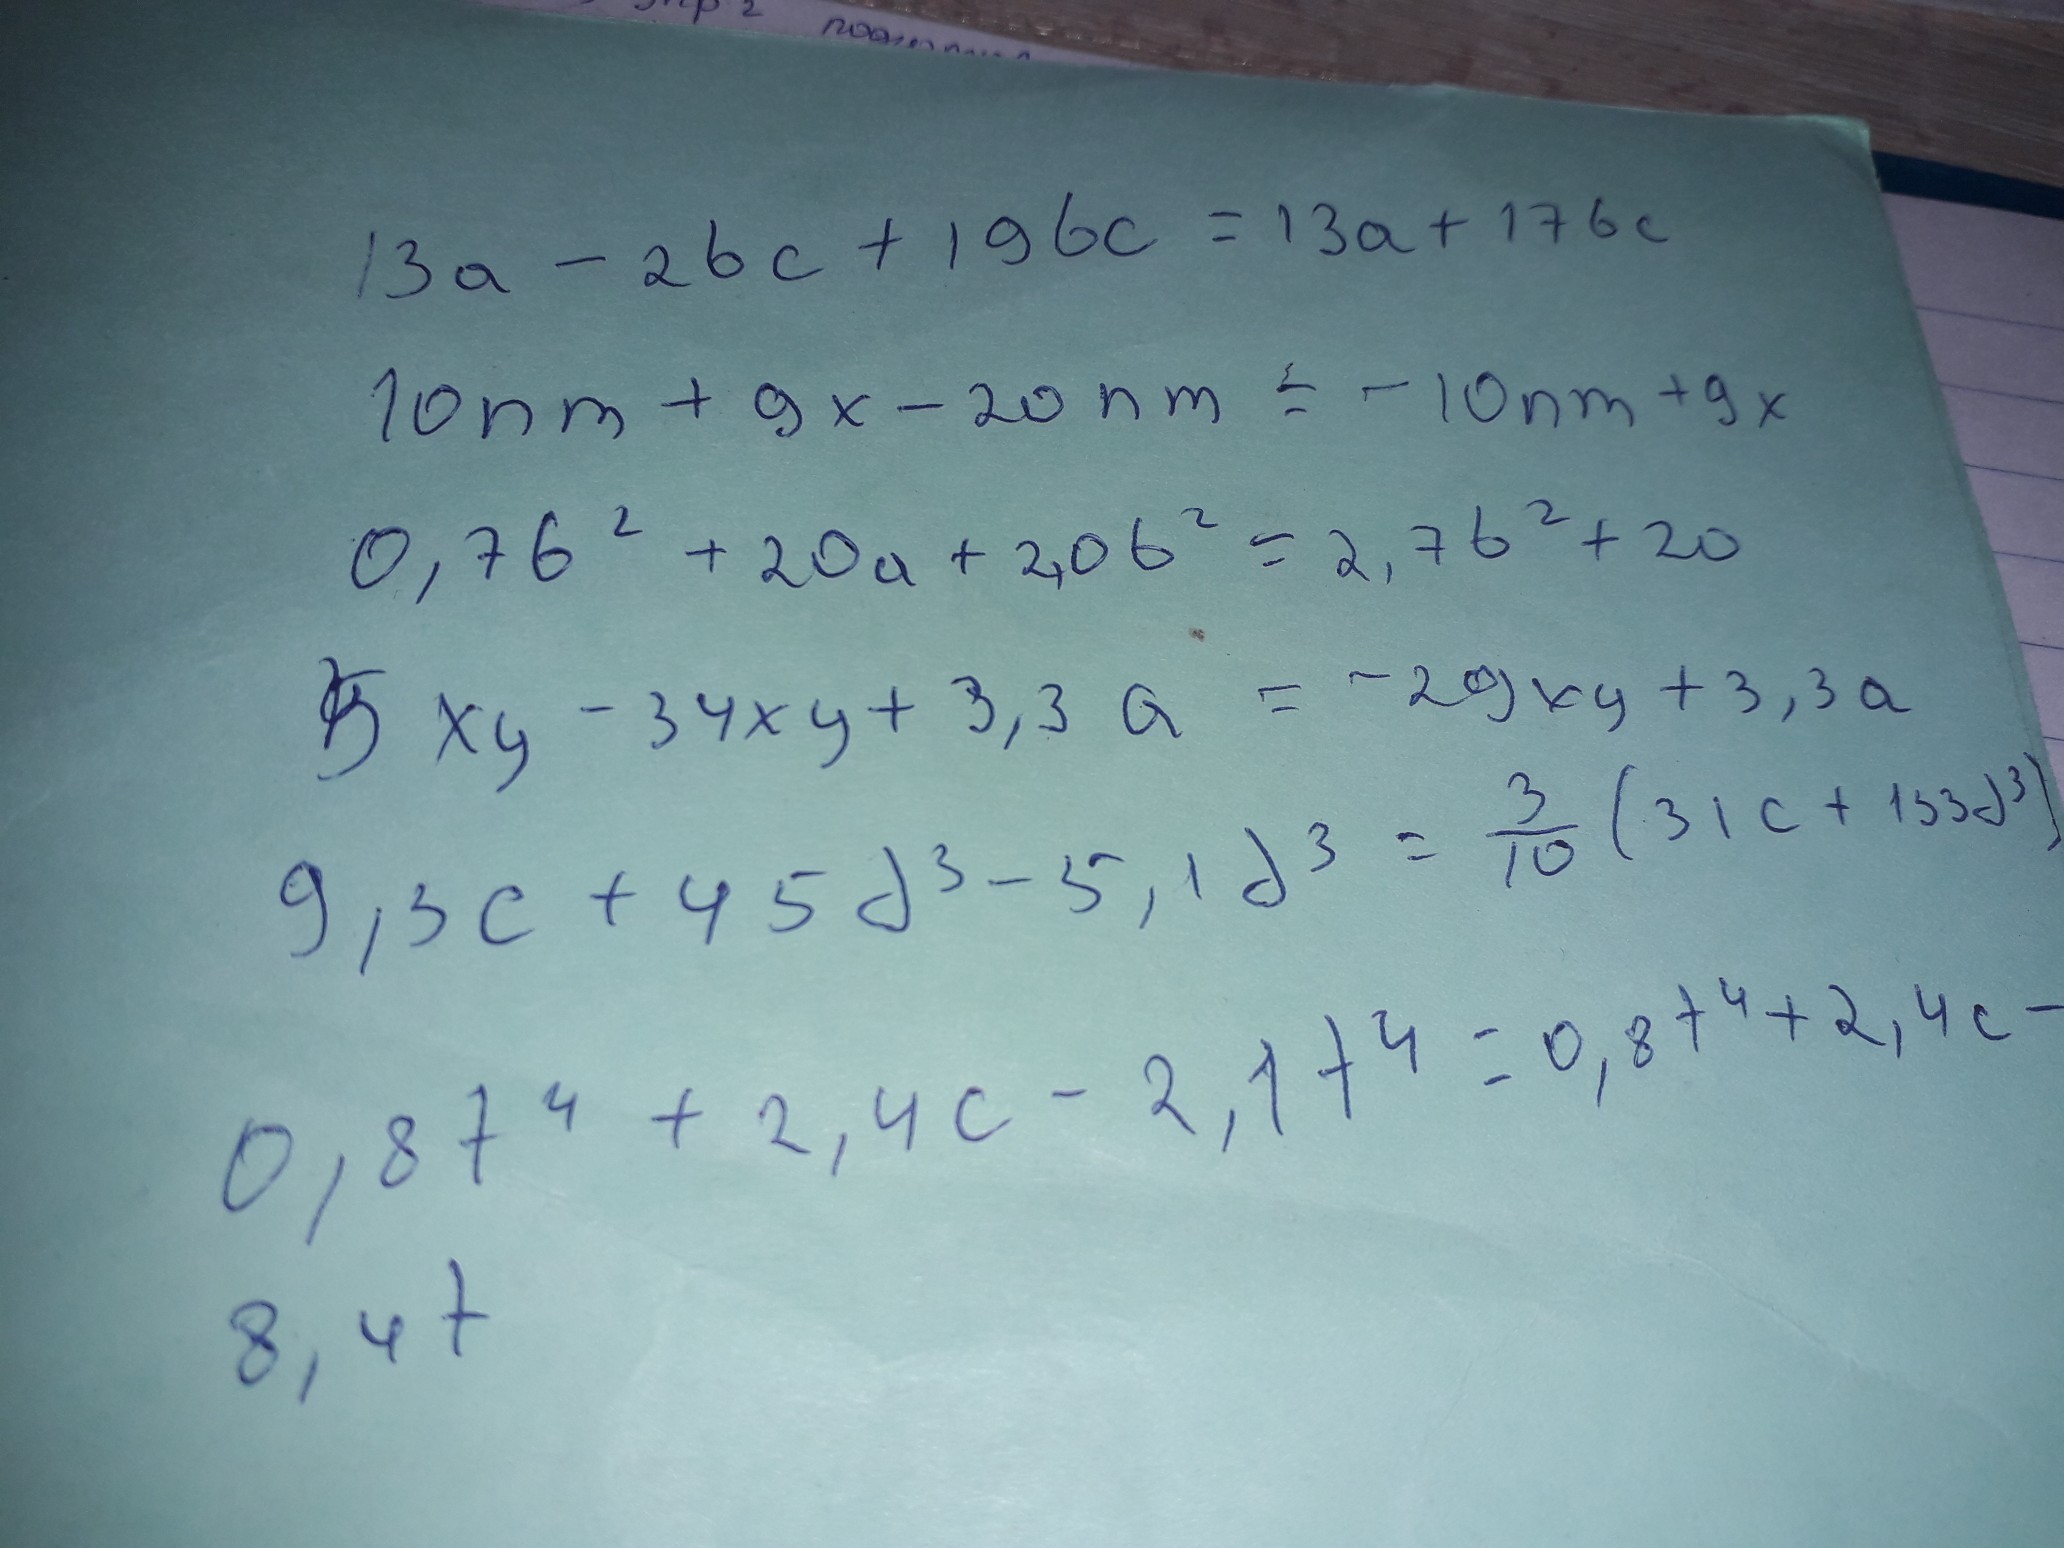 13a - 2bc + 19bc = 13a + 17bc
10nm + 9x - 20nm = -10nm + 9x
0,7b² + 20a + 2,0b² = 2,7b² + 20
5xy - 34xy + 3,3a = -29xy + 3,3a
9,3c + 45d³ - 5,1d³ = 3/10 (31c + 133d³)
0,8t⁴ + 2,4c - 2,1t⁴ = 0,8t⁴ + 2,4c -
8,4t